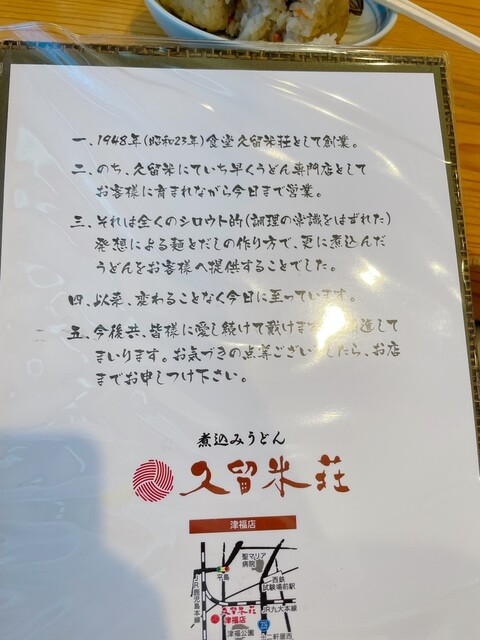 一、1948年(昭和23年)食堂久留米荘として創業。
二、のち、久留米にていち早くうどん専門店として
お客様に育まれながら今日まで営業。
三、それは全くのシロウト的(調理の常識をはずれた)
発想による麺とだしの作り方で、更に煮込んだ
うどんをお客様へ提供することでした。
四、以来、変わることなく今日に至っています。
五、今後共、皆様に愛し続けて戴けます 進して
まいります。お気づきの点等ござい したら、お店
までお申しつけ下さい。
煮込みうどん
久留米荘
津福店
聖マリア
病院
平島
西鉄
試験場前駅
JR鹿児島本線
久留米荘
津福店
JR九大本線
津福公園
二軒屋西